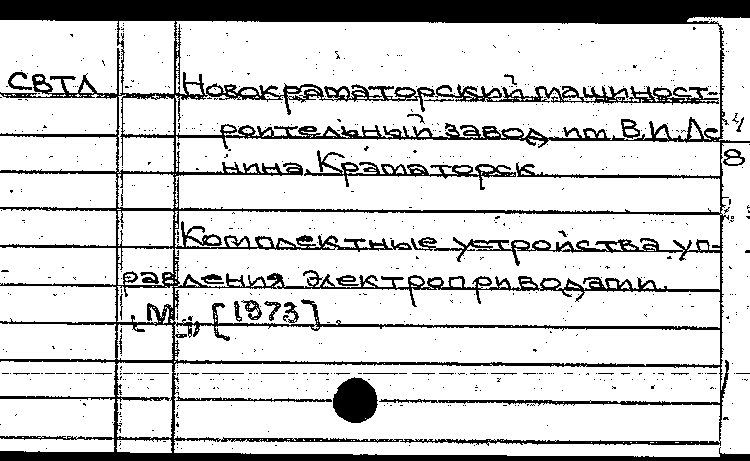 СВТЛ Новокраматорский машиност-
роительный завод им. В.И. Ле
нина. Краматорск.
8
Комплектные устройства уп-
равления электроприводами.
[М.], [1973].